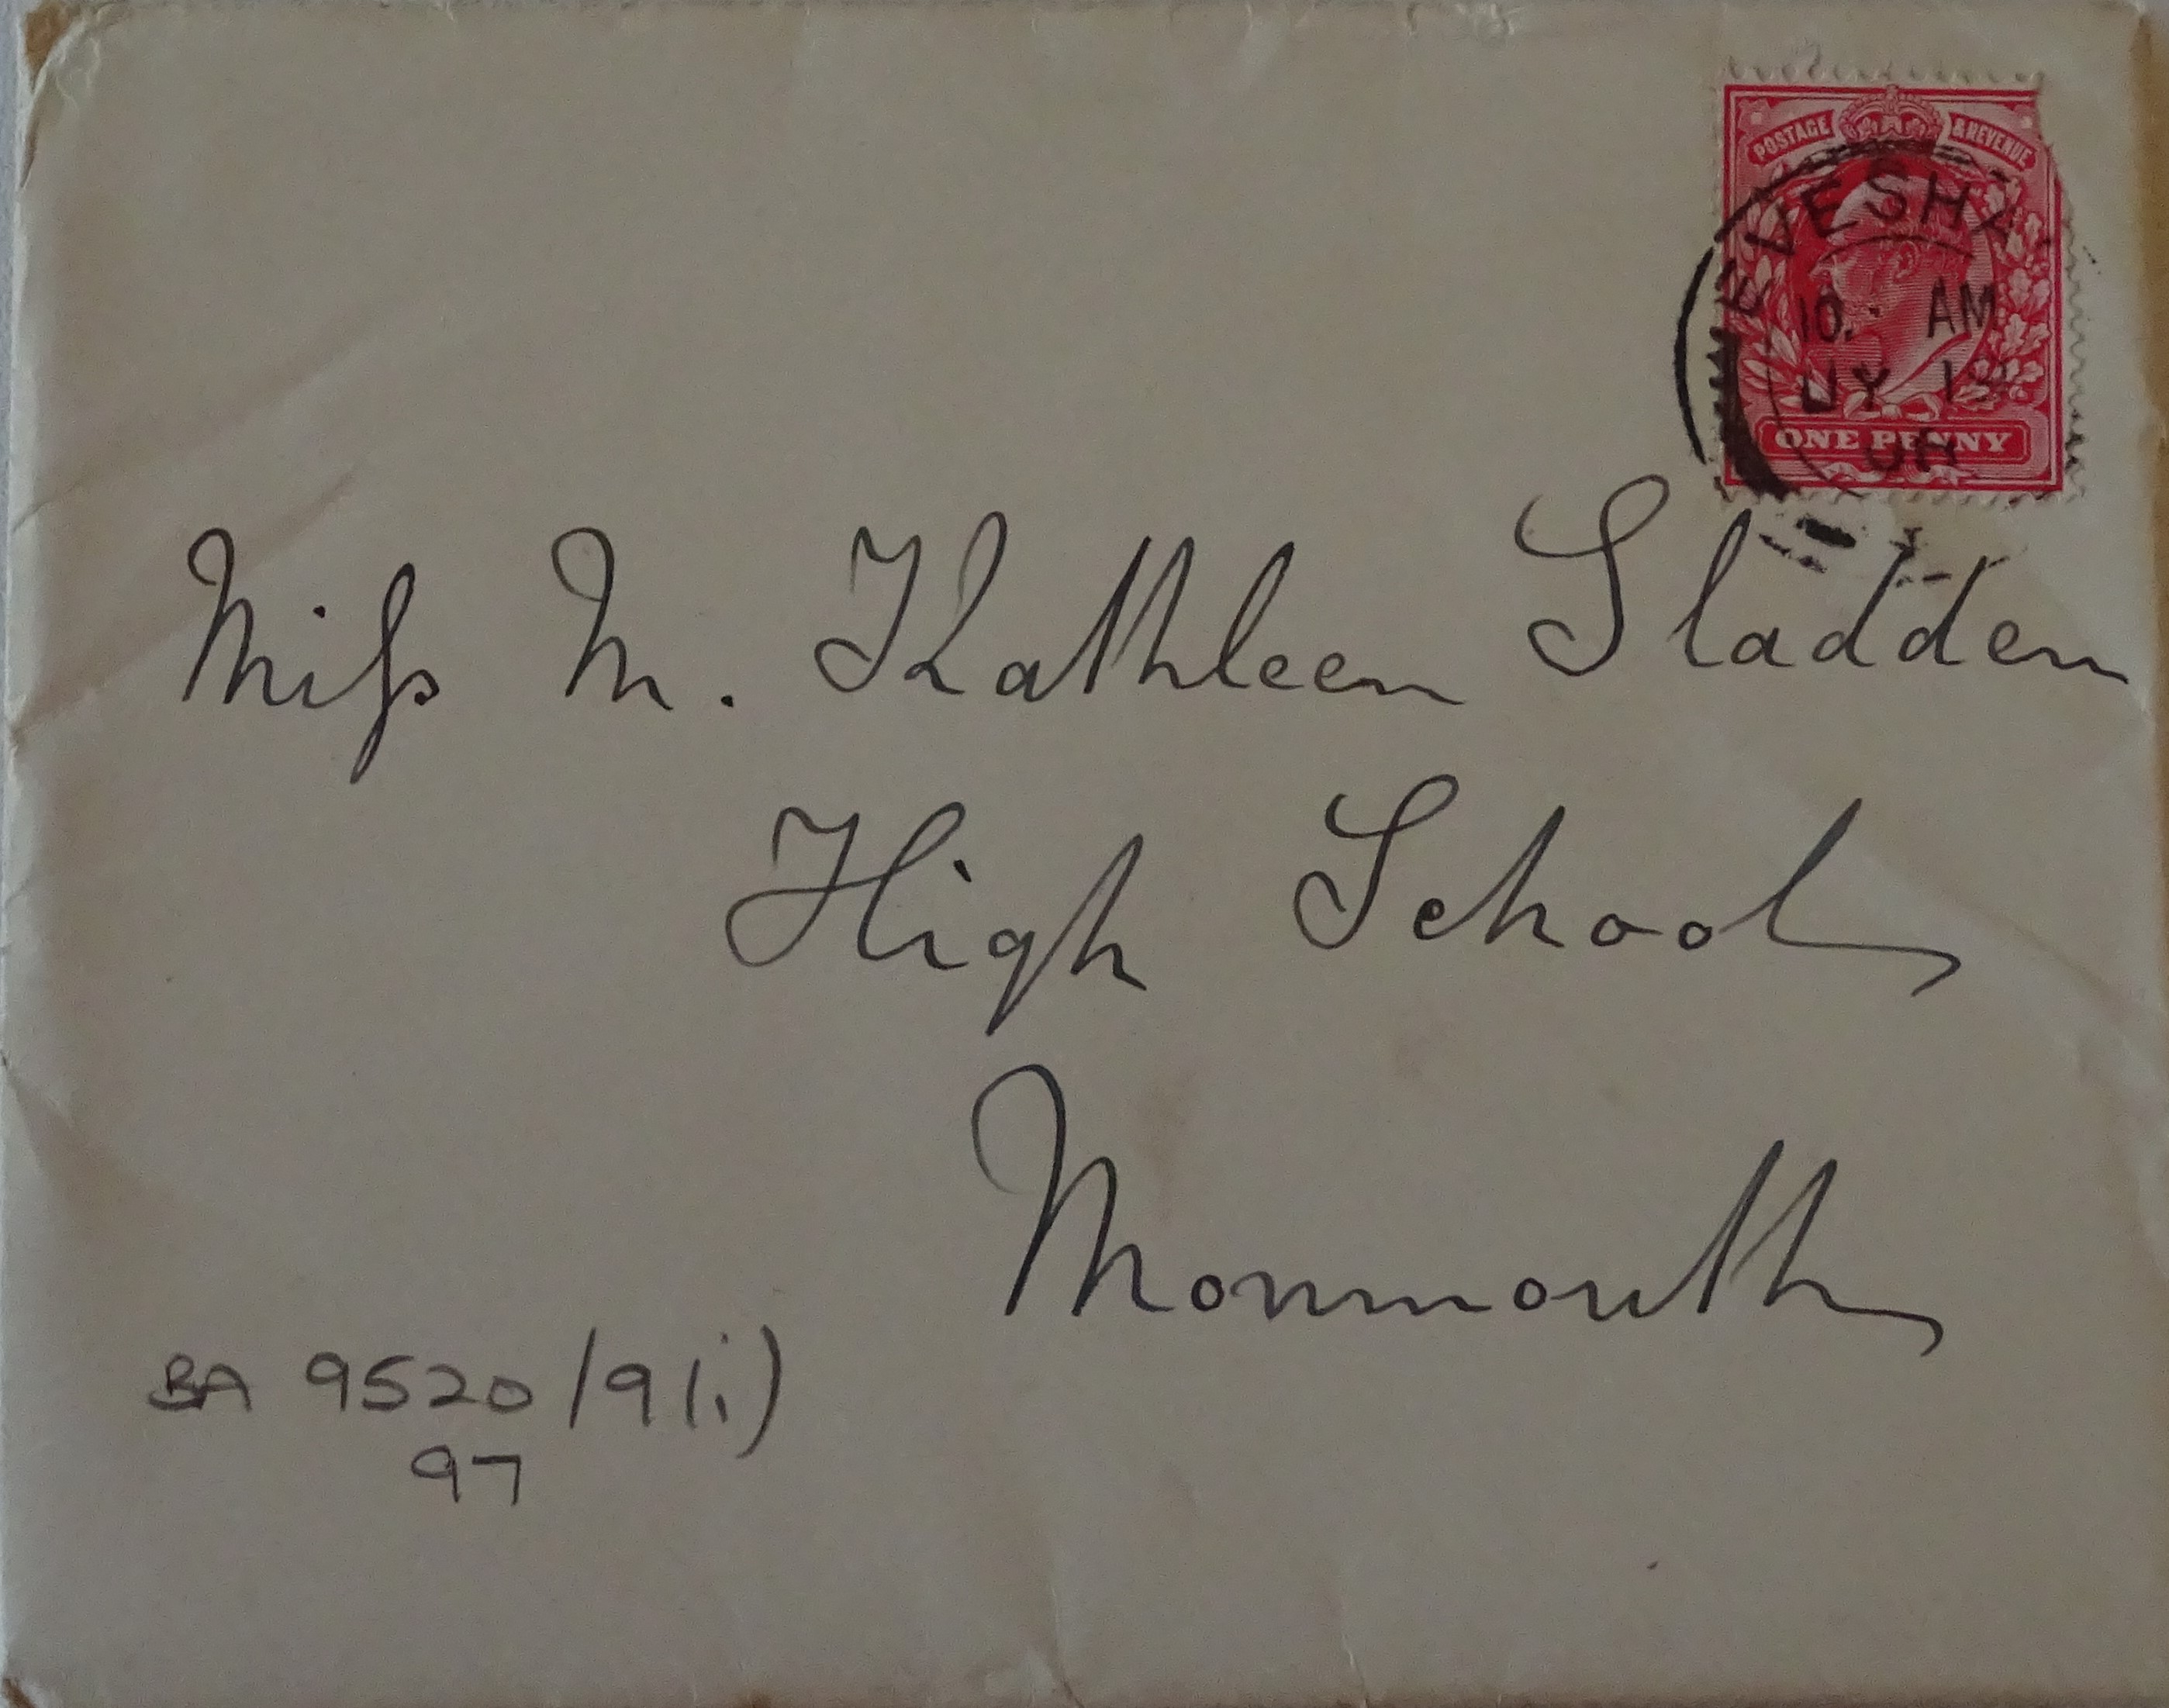 POSTAGE & REVENUE
EVESHA
10. AM
UY 19
ONE PENNY
Miſs M. Kathleen Sladden
High School
Monmouth
BA 9520/9(i)
97